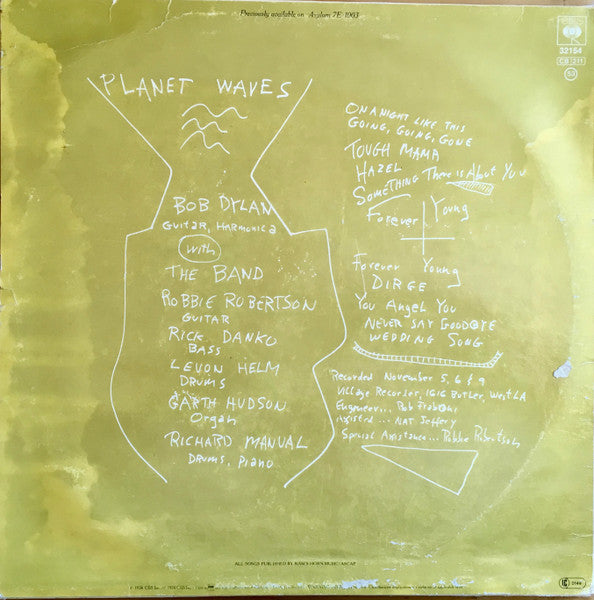 Previously available on Asylum 7E-1003
CBS
32154
CB 211
PLANET WAVES
BOB DYLAN
GUITAR, HARMONICA
with
THE BAND
ROBBIE ROBERTSON
GUITAR
RICK DANKO
BASS
LEVON HELM
DRUMS
GARTH HUDSON
Organ
RICHARD MANUAL
DRUMS, PIANO
ON A NIGHT LIKE THIS
GOING, GOING, GONE
TOUGH MAMA
HAZEL
SOMETHING There is About You
Forever Young
Forever Young
DIRGE
You Angel You
NEVER SAY GOODBYE
WEDDING SONG
Recorded November 5, 6 & 9
Village Recorder, 1616 Butler, West LA
Engineer... Rob Fraboni
Assisted... NAT Jeffery
Special Assistance... Robbie Robertson
ALL SONGS PUBLISHED BY RAM'S HORN MUSIC (ASCAP)